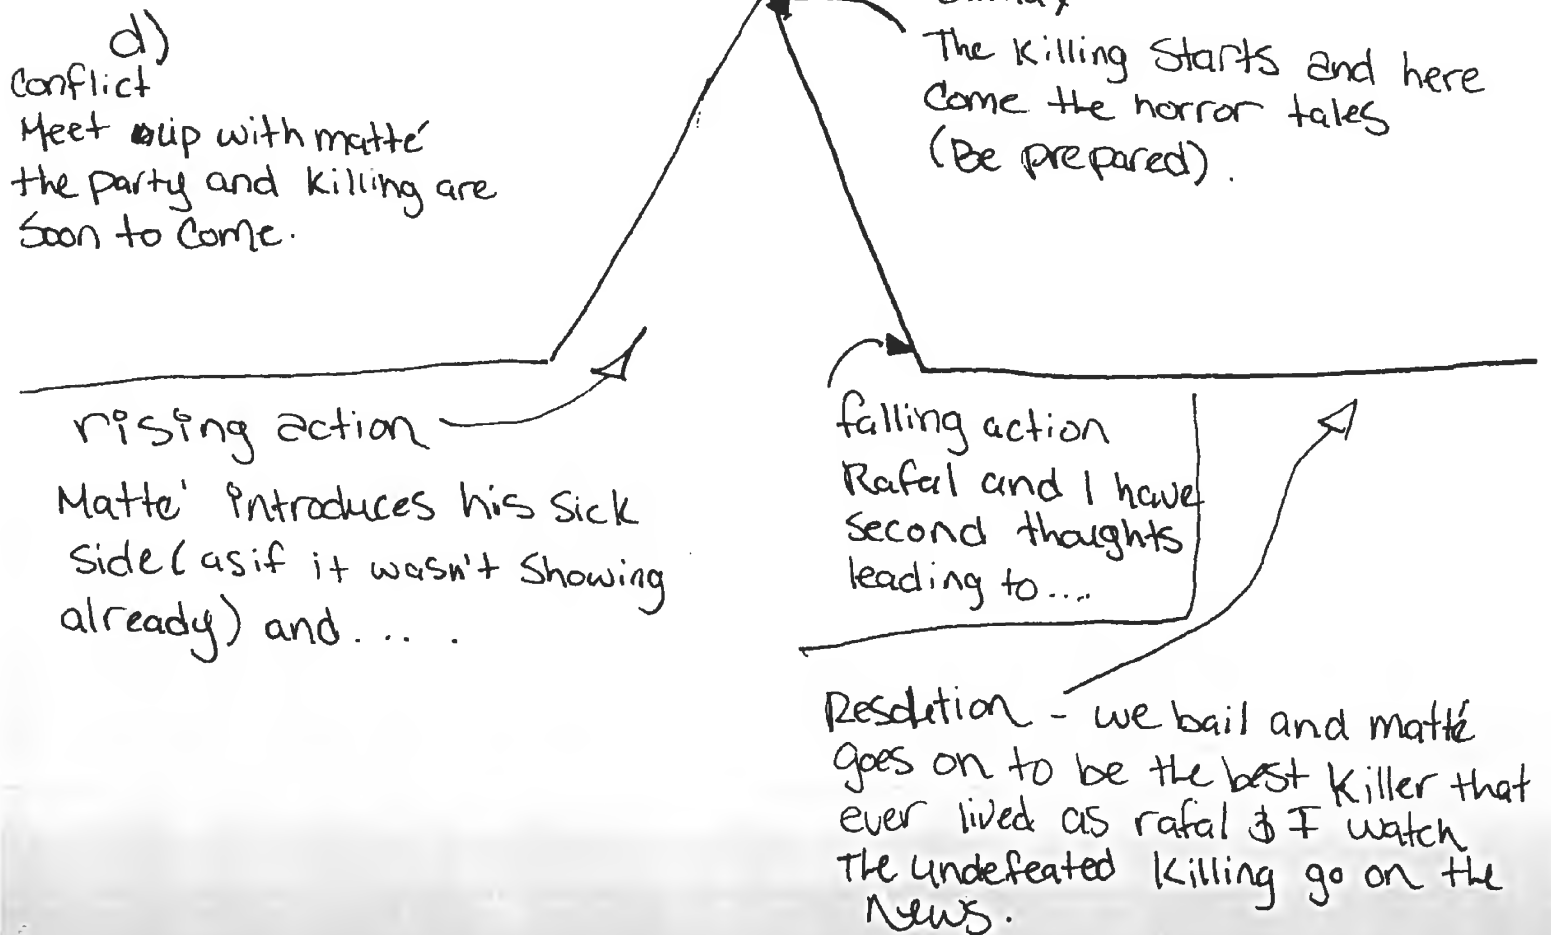 d)
Conflict
Meet up with matté
the party and killing are
Soon to Come.
The Killing Starts and here
Come the horror tales
(Be prepared).
rising action
Matte' introduces his sick
side (as if it wasn't showing
already) and.....
falling action
Rafal and I have
second thoughts
leading to....
Resolution - we bail and matté
goes on to be the best killer that
ever lived as rafal & I watch
The undefeated killing go on the
News.